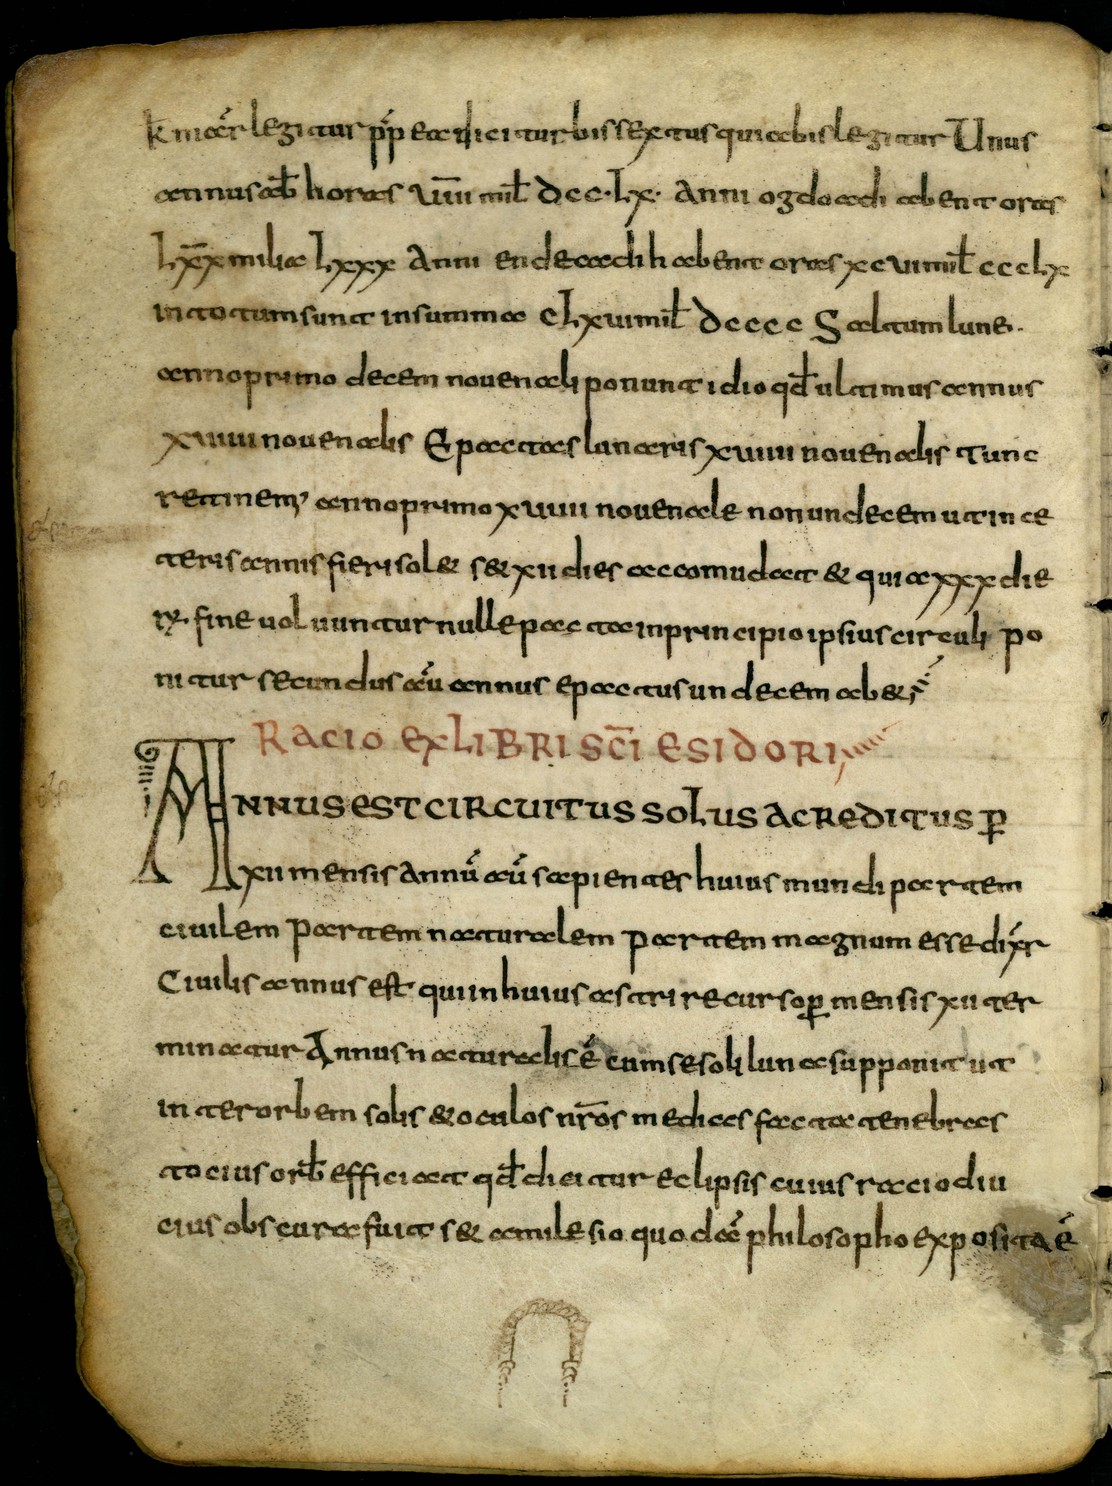 k mar̄ legitur pp̄ ea dicitur bissextus quia bis legitur Unus
annus ab̄ horas VIII mil̄ DCC·LX· Anni ogdoadi abent oras
LXX milia LXXX Anni endecadi habent oras XCVI mil̄ CCCLX
in totum sunt in summa CLXVI mil̄ DCCCC Saltum lune·
anno primo decem nouenali ponunt idio qd̄ ultimus annus
XVIIII nouenalis Epactas lunaris XVIIII nouenalis tunc
retinem' anno primo XVIIII nouenale non undecem ut in ce
teris annis fieri sol& s& XII dies accomudat & quia XXX die
rꝝ fine uoluuntur null epacta in principio ipsius circuli po
nitur secundus aū annus epactus undecem ab&
Racio ex libri sc̄i esidori
Annus est circuitus solus acreditus ꝑ
XII mensis annū aū sapientes huius mundi partem
ciuilem partem naturalem partem magnum esse dixr̄
Ciuilis annus est qui in huius astri recurso ꝑ mensis XII ter
minatur Annus naturalis ē cum se soli luna supponit ut
inter orbem solis & oculos nr̄os medias facta tenebras
tocius orb̄ efficiat qd̄ dicitur eclipsis cuius racio diu
cius obscura fuit s& a milesio quodā philosopho exposita ē